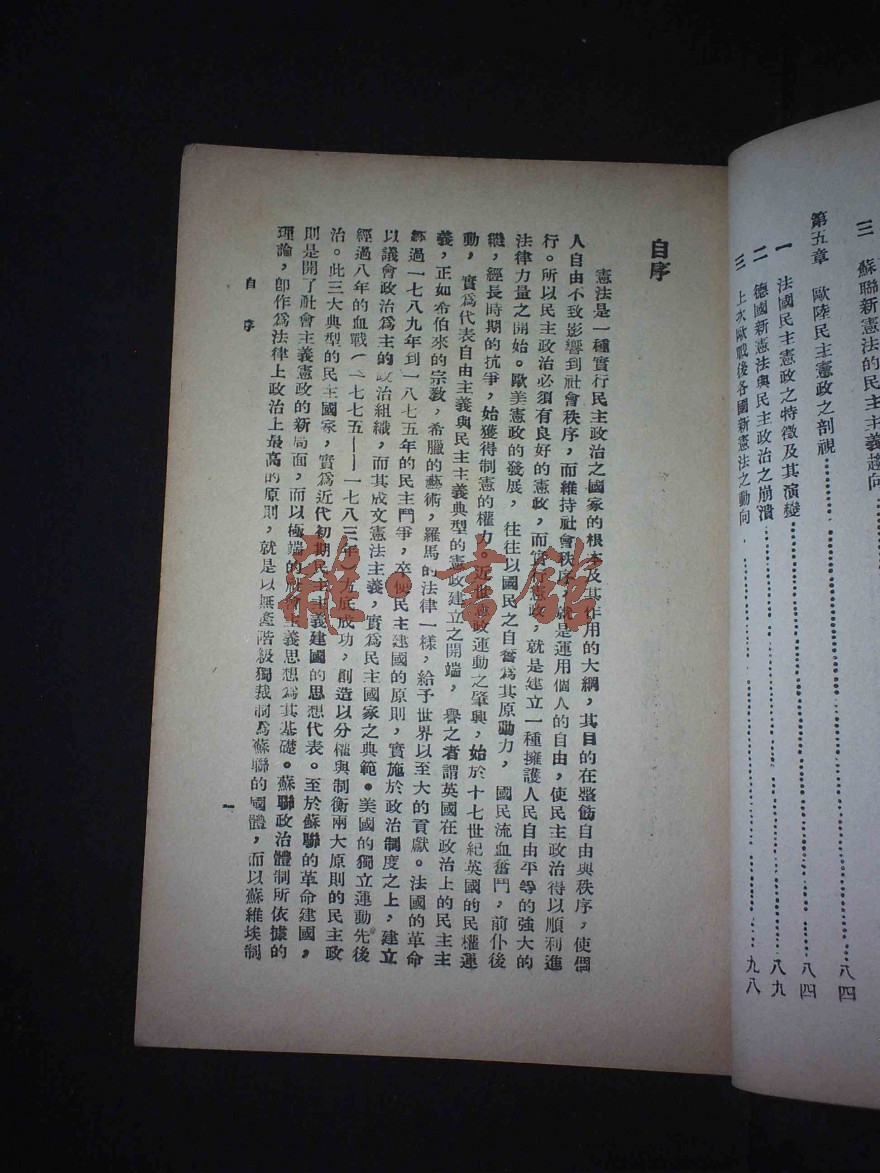 三 蘇聯新憲法的民主主義趨向
第五章 歐陸民主憲政之剖視……八四
一 法國民主憲政之特徵及其演變……八四
二 德國新憲法與民主政治之崩潰……八九
三 上次歐戰後各國新憲法之動向……九八
自序
憲法是一種實行民主政治之國家的根本及其作用的大綱，其目的在整飭自由與秩序，使個
人自由不致影響到社會秩序，而維持社會秩序，就是運用個人的自由，使民主政治得以順利進
行。所以民主政治必須有良好的憲政，而實行憲政，就是建立一種擁護人民自由平等的強大的
法律力量之開始。歐美憲政的發展，往往以國民之自奮爲其原動力，國民流血奮鬥，前仆後
繼，經長時期的抗爭，始獲得制憲的權力。近世憲政運動之肇興，始於十七世紀英國的民權運
動，實爲代表自由主義與民主主義典型的憲政建立之開端，譽之者謂英國在政治上的民主主
義，正如希伯來的宗教，希臘的藝術，羅馬的法律一樣，給予世界以至大的貢獻。法國的革命
經過一七八九年到一八七五年的民主鬥爭，卒使民主建國的原則，實施於政治制度之上，建立
以議會政治爲主的政治組織，而其成文憲法主義，實爲民主國家之典範。美國的獨立運動先後
經過八年的血戰（一七七五——一七八三年）方底成功，創造以分權與制衡兩大原則的民主政
治。此三大典型的民主國家，實爲近代初期民主主義建國的思想代表。至於蘇聯的革命建國，
則是開了社會主義憲政的新局面，而以極端的社會主義思想爲其基礎。蘇聯政治體制所依據的
理論，卽作爲法律上政治上最高的原則，就是以無產階級獨裁制爲蘇聯的國體，而以蘇維埃制
自序
一
雅·書館